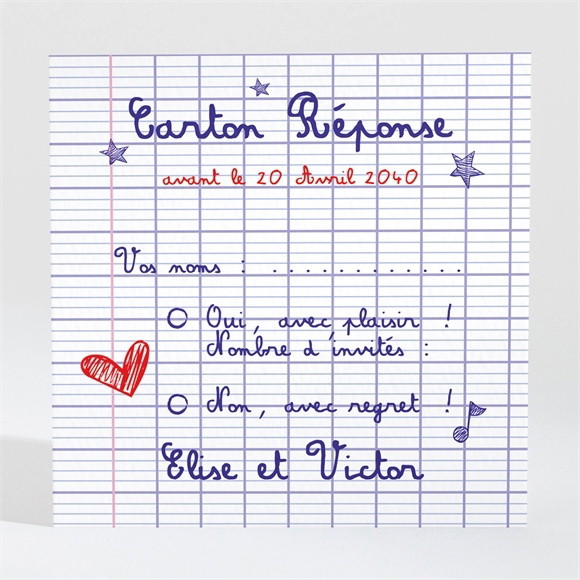 Carton Réponse
avant le 20 Avril 2040
Vos noms : . . . . . . . . . . . .
Oui, avec plaisir !
Nombre d'invités :
Non, avec regret !
Elise et Victor